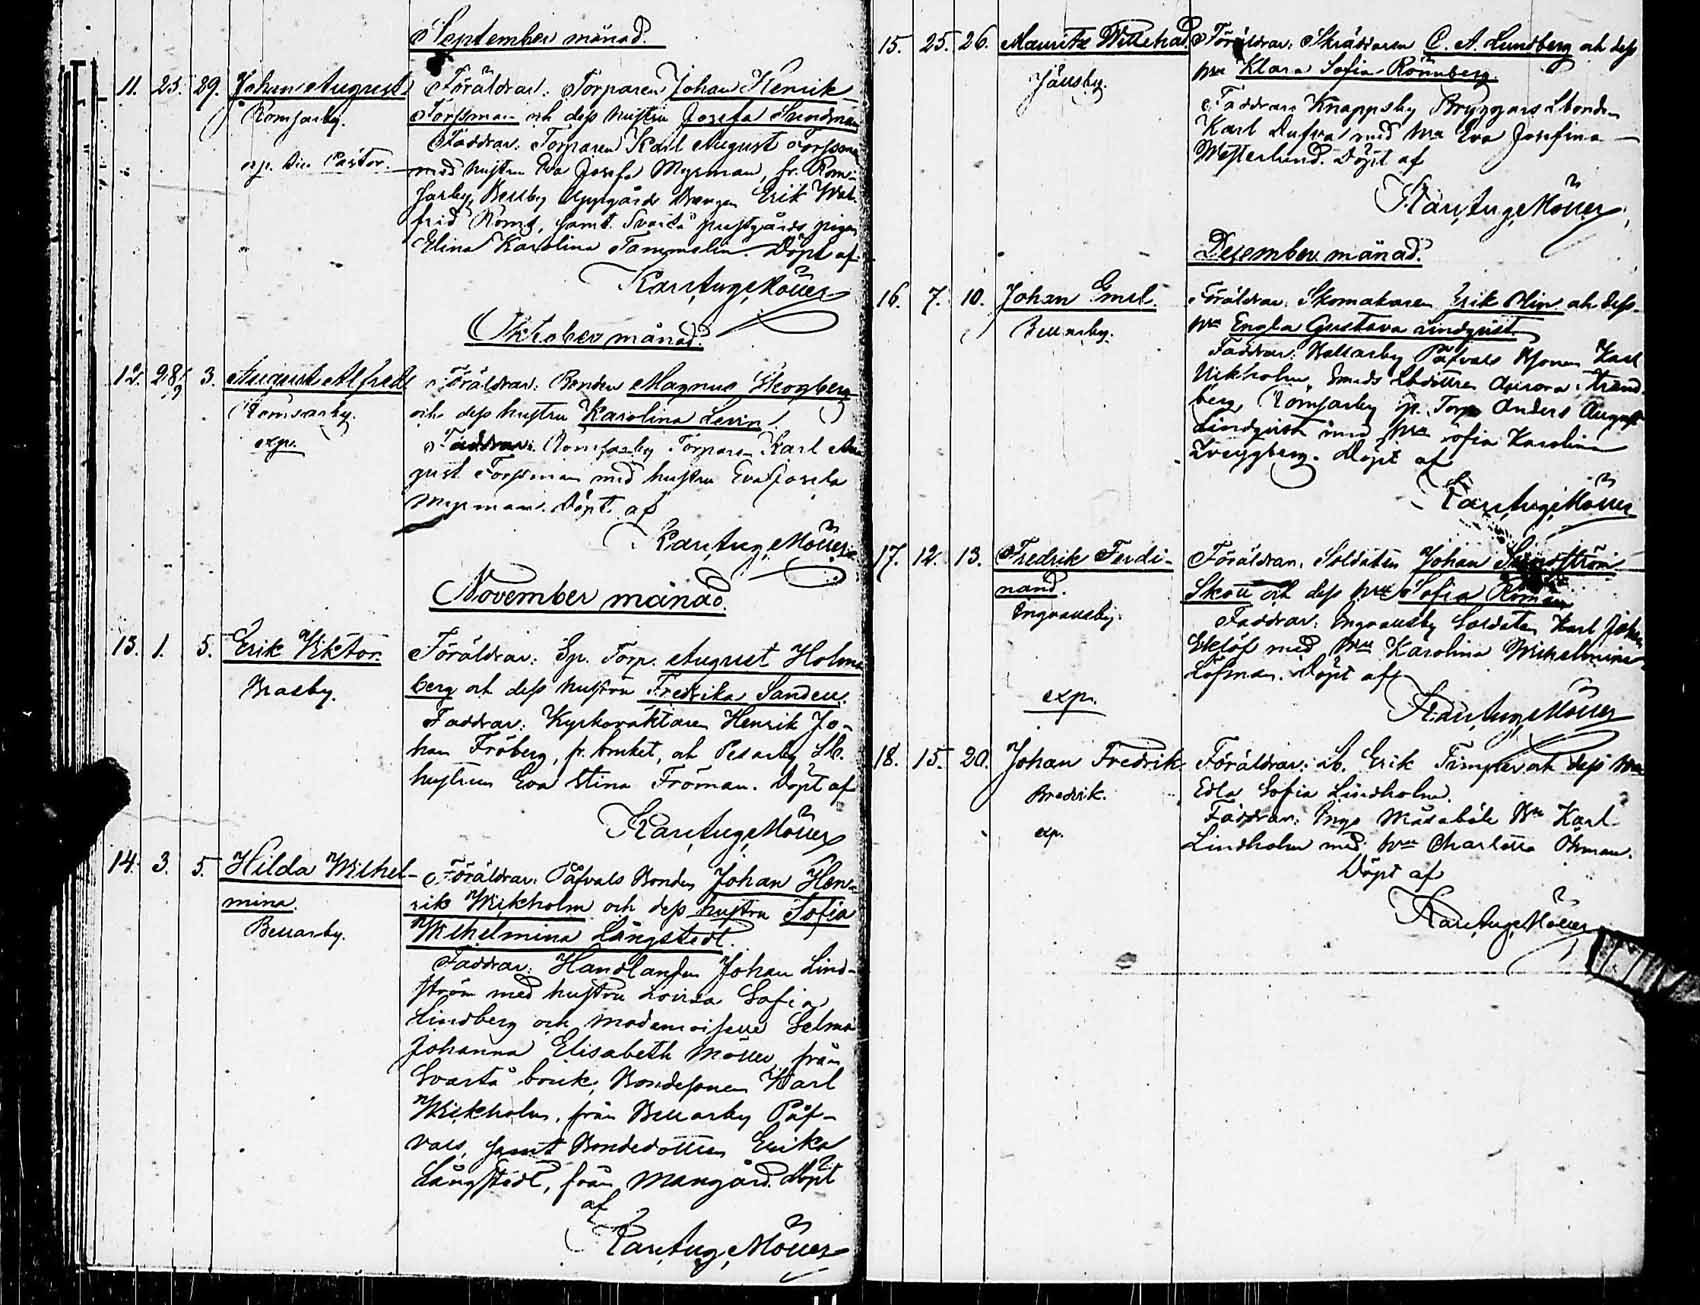 September månad.
11. 25. 29. Johan August Föräldrar: Torparen Johan Henrik
Romsarby. Forssman och dess hustru Josefa Sundman
Faddrar: Torparen Karl August Forssman
exp. till Pastor med hustru Eva Josefa Myrman, fr. Rom-
sarby, Bellby Uppgårds Drengen Erik Wil-
frid Roms, samt Svartå prestgårds pigan
Elina Karolina Tammelin. Döpt af
Karl Aug. Möller
Oktober månad.
12. 28/9 3. August Alfred Föräldrar: Bonden Magnus Skogberg
Romsarby. och dess hustru Karolina Levin.
exp. Faddrar: Romsarby Torparen Karl Au-
gust Forssman med hustru Eva Josefa
Myrman. Döpt af
Karl Aug. Möller
November månad.
13. 1. 5. Erik Viktor. Föräldrar: Sp. Torp. August Holm-
Brasby. berg och dess hustru Fredrika Sandell.
Faddrar: Kyrkovaktaren Henrik Jo-
han Fröberg, fr. bruket, och
hustrun Eva Stina Fröman. Döpt af
Karl Aug. Möller
14. 3. 5. Hilda Wilhel- Föräldrar: Påfvals Bonden Johan Hen-
mina. rik Wikholm och dess hustru Sofia
Bellarby. Wilhelmina Långstedt.
Faddrar: Handlanden Johan Lind-
ström med hustru Lovisa Sofia
Lindberg och Mademoiselle Selma
Johanna Elisabeth Möller, från
Svartå bruk, Bondesonen Karl
Wikholm, från Bellarby Påf-
vals, samt Bondedottren Erika
Långstedt, från Mangård. Döpt
af
Karl Aug. Möller
15. 25. 26. Mauritz Willehad Föräldrar: Skräddaren C. A. Lundberg och dess
Jällsby. hru Klara Sofia Rönnberg.
Faddrar: Knappsby Bryggars Lbonden
Karl Dufva med hru Eva Josefina
Westerlund. Döpt af
Karl Aug. Möller
December månad.
16. 7. 10. Johan Emil. Föräldrar: Skomakaren Erik Olin och dess
Bellarby. hru Engla Gustava Lindqvist.
Faddrar: Bellarby Påfvals Bsonen Karl
Wikholm, Smeds Lbdottren Aurora Strand-
berg, Romsarby sp. Torp. Anders August
Lindqvist med hru Sofia Karolina
Döpt af
Karl Aug. Möller
17. 12. 13. Fredrik Ferdi- Föräldrar: Soldaten Johan Sandström
nand. Skött och dess hru Sofia Roman
Ingvallsby. Faddrar: Ingvallsby Soldaten Karl Johan
Eklöf med hru Karolina Wilhelmina
Löfman. Döpt af
exp.
Karl Aug. Möller
18. 15. 20. Johan Fredrik. Föräldrar: Lb. Erik och dess hru
Bredvik. Edla Sofia Lindholm.
exp. Faddrar: Ingo Måsabåle Bn Karl
Lindholm med hru Charlotta Öhman.
Döpt af
Karl Aug. Möller